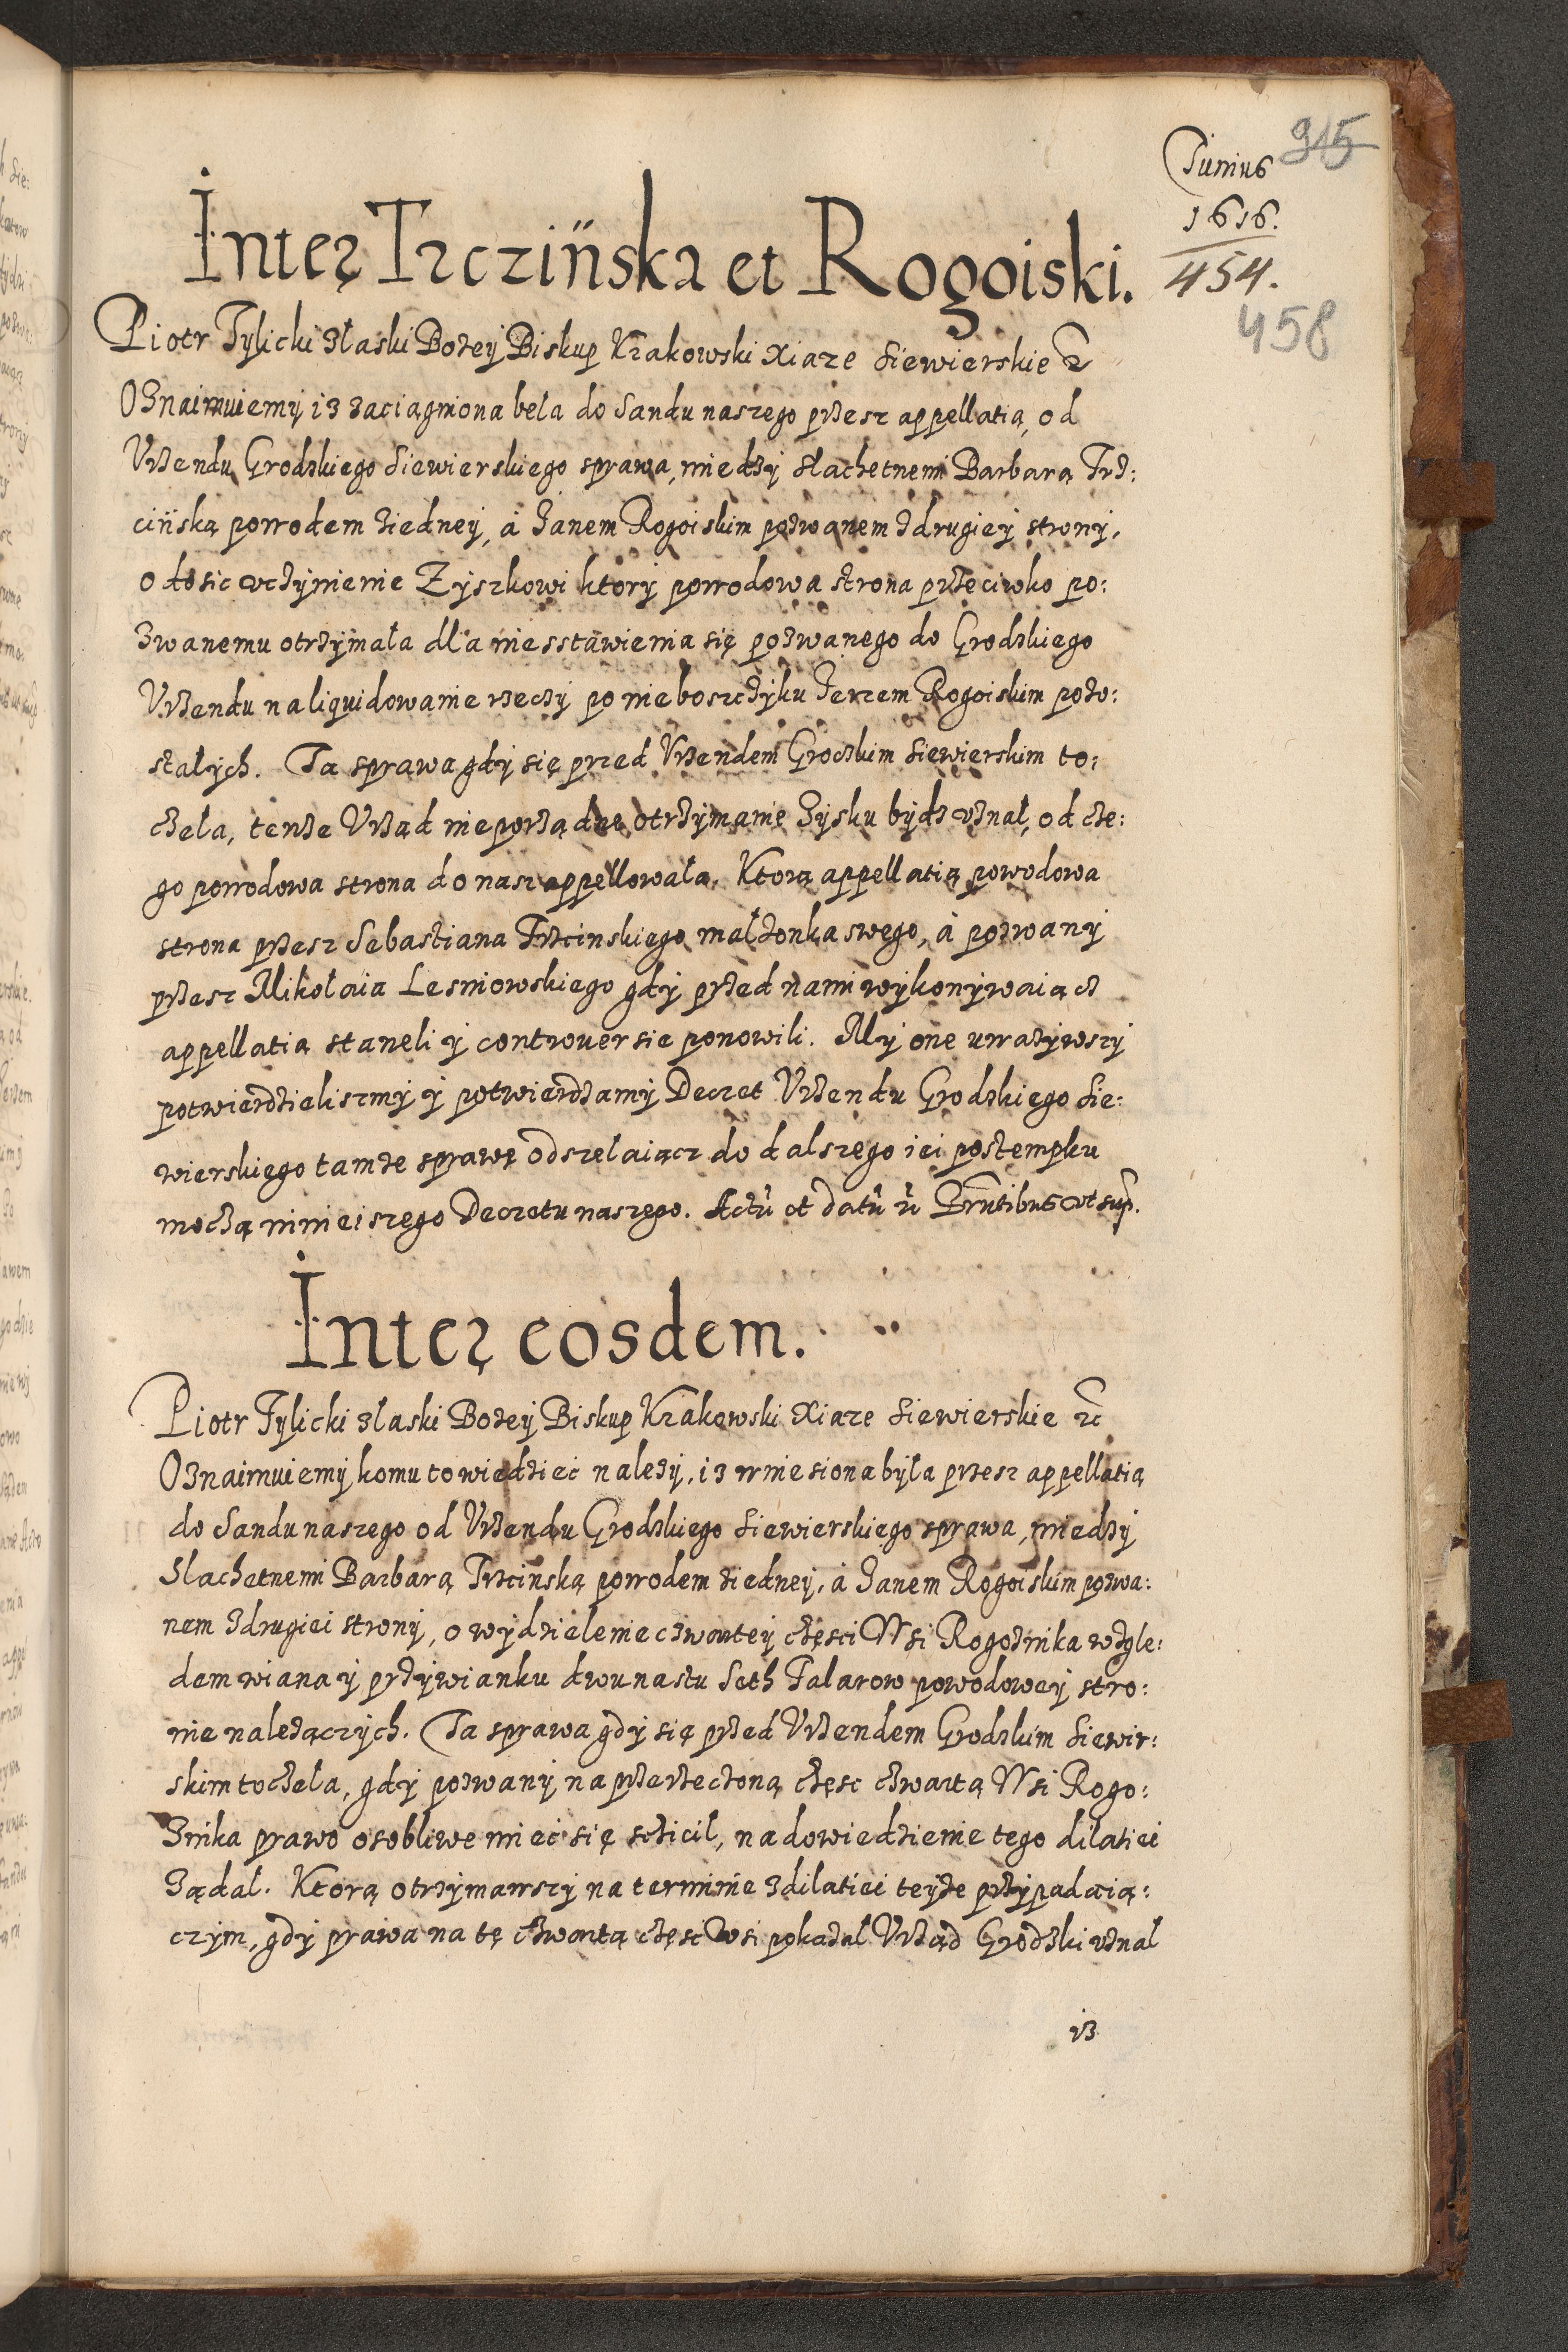 915
Junius
1616.
454.
458
Inter Trczińska et Rogoiski.
Piotr Tylicki złaski Bozey Biskup Krakowski Xiąze Siewierskie etc
Oznaimuiemy iz zaciągniona beła do Sandu naszego przesz appellatią, od
Vrzendu Grodzkiego Siewierskiego sprawa, miedzy slachetnemi Barbarą Trz:
cińską powodem ziedney, á Janem Rogoiskim pozwanem zdrugiey strony,
o dosic vczynienie Zyszkowi ktory powodowa strona przeciwko po:
zwanemu otrzymała dla niesstawienia się pozwanego do Grodzkiego
Vrzendu na liquidowanie rzeczy po nieboszczyku Jerzem Rogoiskim pozo:
stałych. Ta sprawa gdy się przed Vrzendem Grodzkim Siewierskim to:
czeła, tenze Vrząd nieporządne otrzymanie Zysku bydz vznał, od cze:
go powodowa strona do nasz appellowała. Ktorą appellatią powodowa
strona przesz Sebastiana Trzcinskiego małzonka swego, á pozwany
przesz Mikołaia Lesniowskiego gdy przed nami wykonywaiącz
appellatią staneli y controuersie ponowili. My one uwazywszy
potwierdzieliszmy y potwierdzamy Decret Vrzendu Grodzkiego Sie:
wierskiego tamze sprawę odszełaiącz do dalszego iei postempku
moczą ninieiszego Decretu naszego. Actũ et datũ ũ Prñtibus vt sup.
Inter eosdem.
Piotr Tylicki złaski Bozey Biskup Krakowski Xiąze Siewierskie etc
Oznaimuiemy komu to wiedziec nalezy, iz wniesiona była przesz appellatią
do Sandu naszego od Vrzendu Grodzkiego Siewierskiego sprawa, miedzy
Slachetnemi Barbarą Trzcinską powodem ziedney, á Janem Rogoiskim pozwa:
nem zdrugiei strony, o wydzielenie czwartey częsci Wsi Rogoznika wzgle:
dem wiana y przywianku dwunastu Seth Talarow powodowey stro:
nie nalezączych. Ta sprawa gdy się przed Vrzendem Grodzkim Siewir:
skim toczeła, gdy pozwany na przerzeczoną częsc czwartą Wsi Rogo:
znika prawo osobliwe miec się sczicil, na dowiedzienie tego dilatiei
ządal. Ktorą otrzymawszy na terminie zdilatiei teyze przypadaią:
czym, gdy prawa na tę czwartą częsc Wsi pokazal Vrząd Grodzki vznal
iz